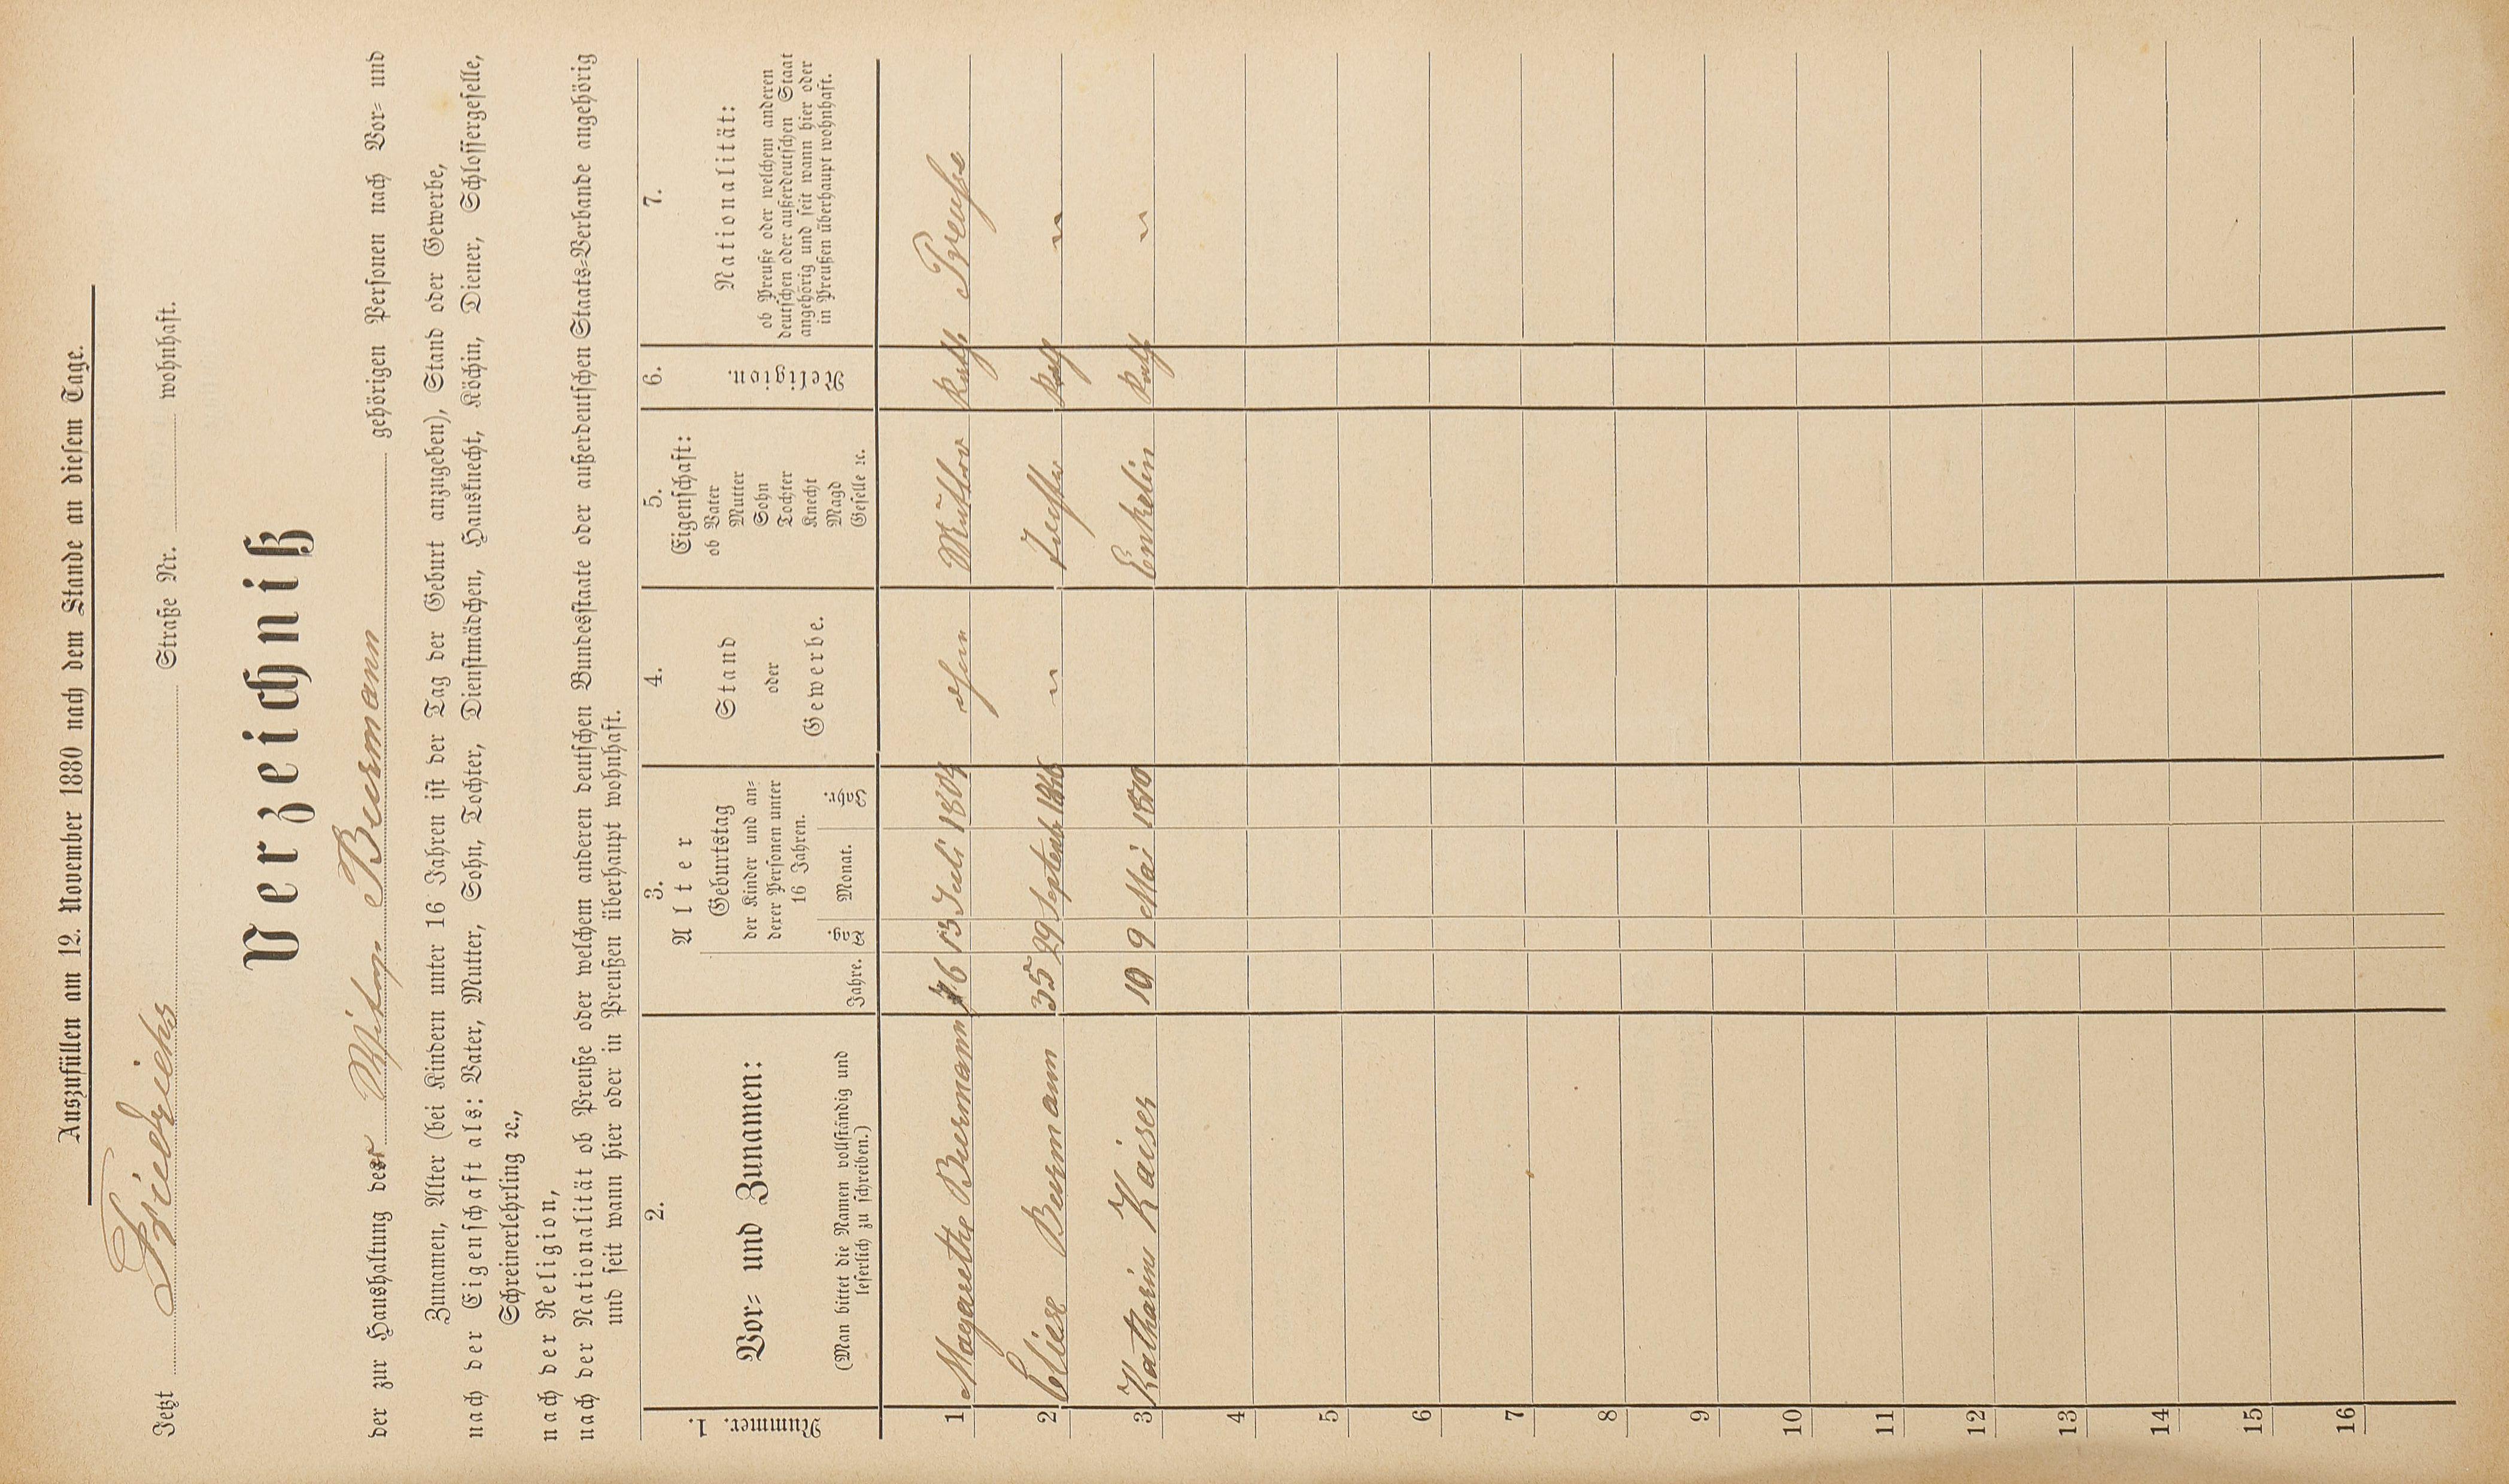 Auszufüllen am 12. November 1880 nach dem Stande an diesem Tage.
Jetzt Friedrichs Straße Nr. wohnhaft.
Verzeichniß
der zur Haushaltung der Buermann gehörigen Personen nach Vor- und
Zunamen, Alter (bei Kindern unter 16 Jahren ist der Tag der Geburt anzugeben), Stand oder Gewerbe,
nach der Eigenschaft als: Vater, Mutter, Sohn, Tochter, Dienstmädchen, Hausknecht, Köchin, Diener, Schlossergeselle,
Schreinerlehrling ꝛc.,
nach der Religion,
nach der Nationalität ob Preuße oder welchem anderen deutschen Bundesstaate oder außerdeutschen Staats-Verbande angehörig
und seit wann hier oder in Preußen überhaupt wohnhaft.
1. Nummer.
2. Vor- und Zunamen:
(Man bittet die Namen vollständig und
leserlich zu schreiben.)
3. Alter
Jahre.
Geburtstag
der Kinder und an-
derer Personen unter
16 Jahren.
Tag. Monat. Jahr.
4. Stand
oder
Gewerbe.
5. Eigenschaft:
ob Vater
Mutter
Sohn
Tochter
Knecht
Magd
Geselle ꝛc.
6. Religion.
7. Nationalität:
ob Preuße oder welchem anderen
deutschen oder außerdeutschen Staat
angehörig und seit wann hier oder
in Preußen überhaupt wohnhaft.
1 Magarethe Buermann 76 13 Juli 1804 ohne Mutter Kath Preusse
2 Eliese Buermann 35 29 Septemb " Tochter Kath "
3 Katharina Kaiser 10 9 Mai 1870 Enkelin Kath "
4
5
6
7
8
9
10
11
12
13
14
15
16